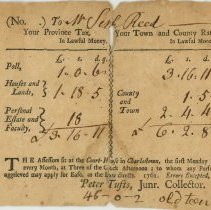 (No. ) To Mr Seth Reed
Your Province Tax, Your Town and County Rate
In Lawful Money. In Lawful Mone
Poll, 1.0.6 3.16.11
Houses and Lands, 1.18.5 County and Town 1.5
Personal Estate and Faculty, 18 2.4
3.16.11 6.2.8
THE Assessors sit at the Court-House in Charlestown, the first Monday
every Month, at Three of the Clock Afternoon; to which any Person
aggrieved may apply for Ease, as the Law directs. 1761. Errors Excepted,
Peter Tufts, Junr. Collector.
46-0-2 old ten